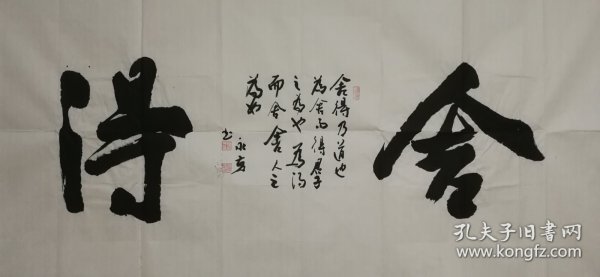 舍
得
舍得乃道也
为舍而得君子
之为也为得
而舍舍人之
为也
永亮
书
孔夫子旧书网
www.kongfz.com